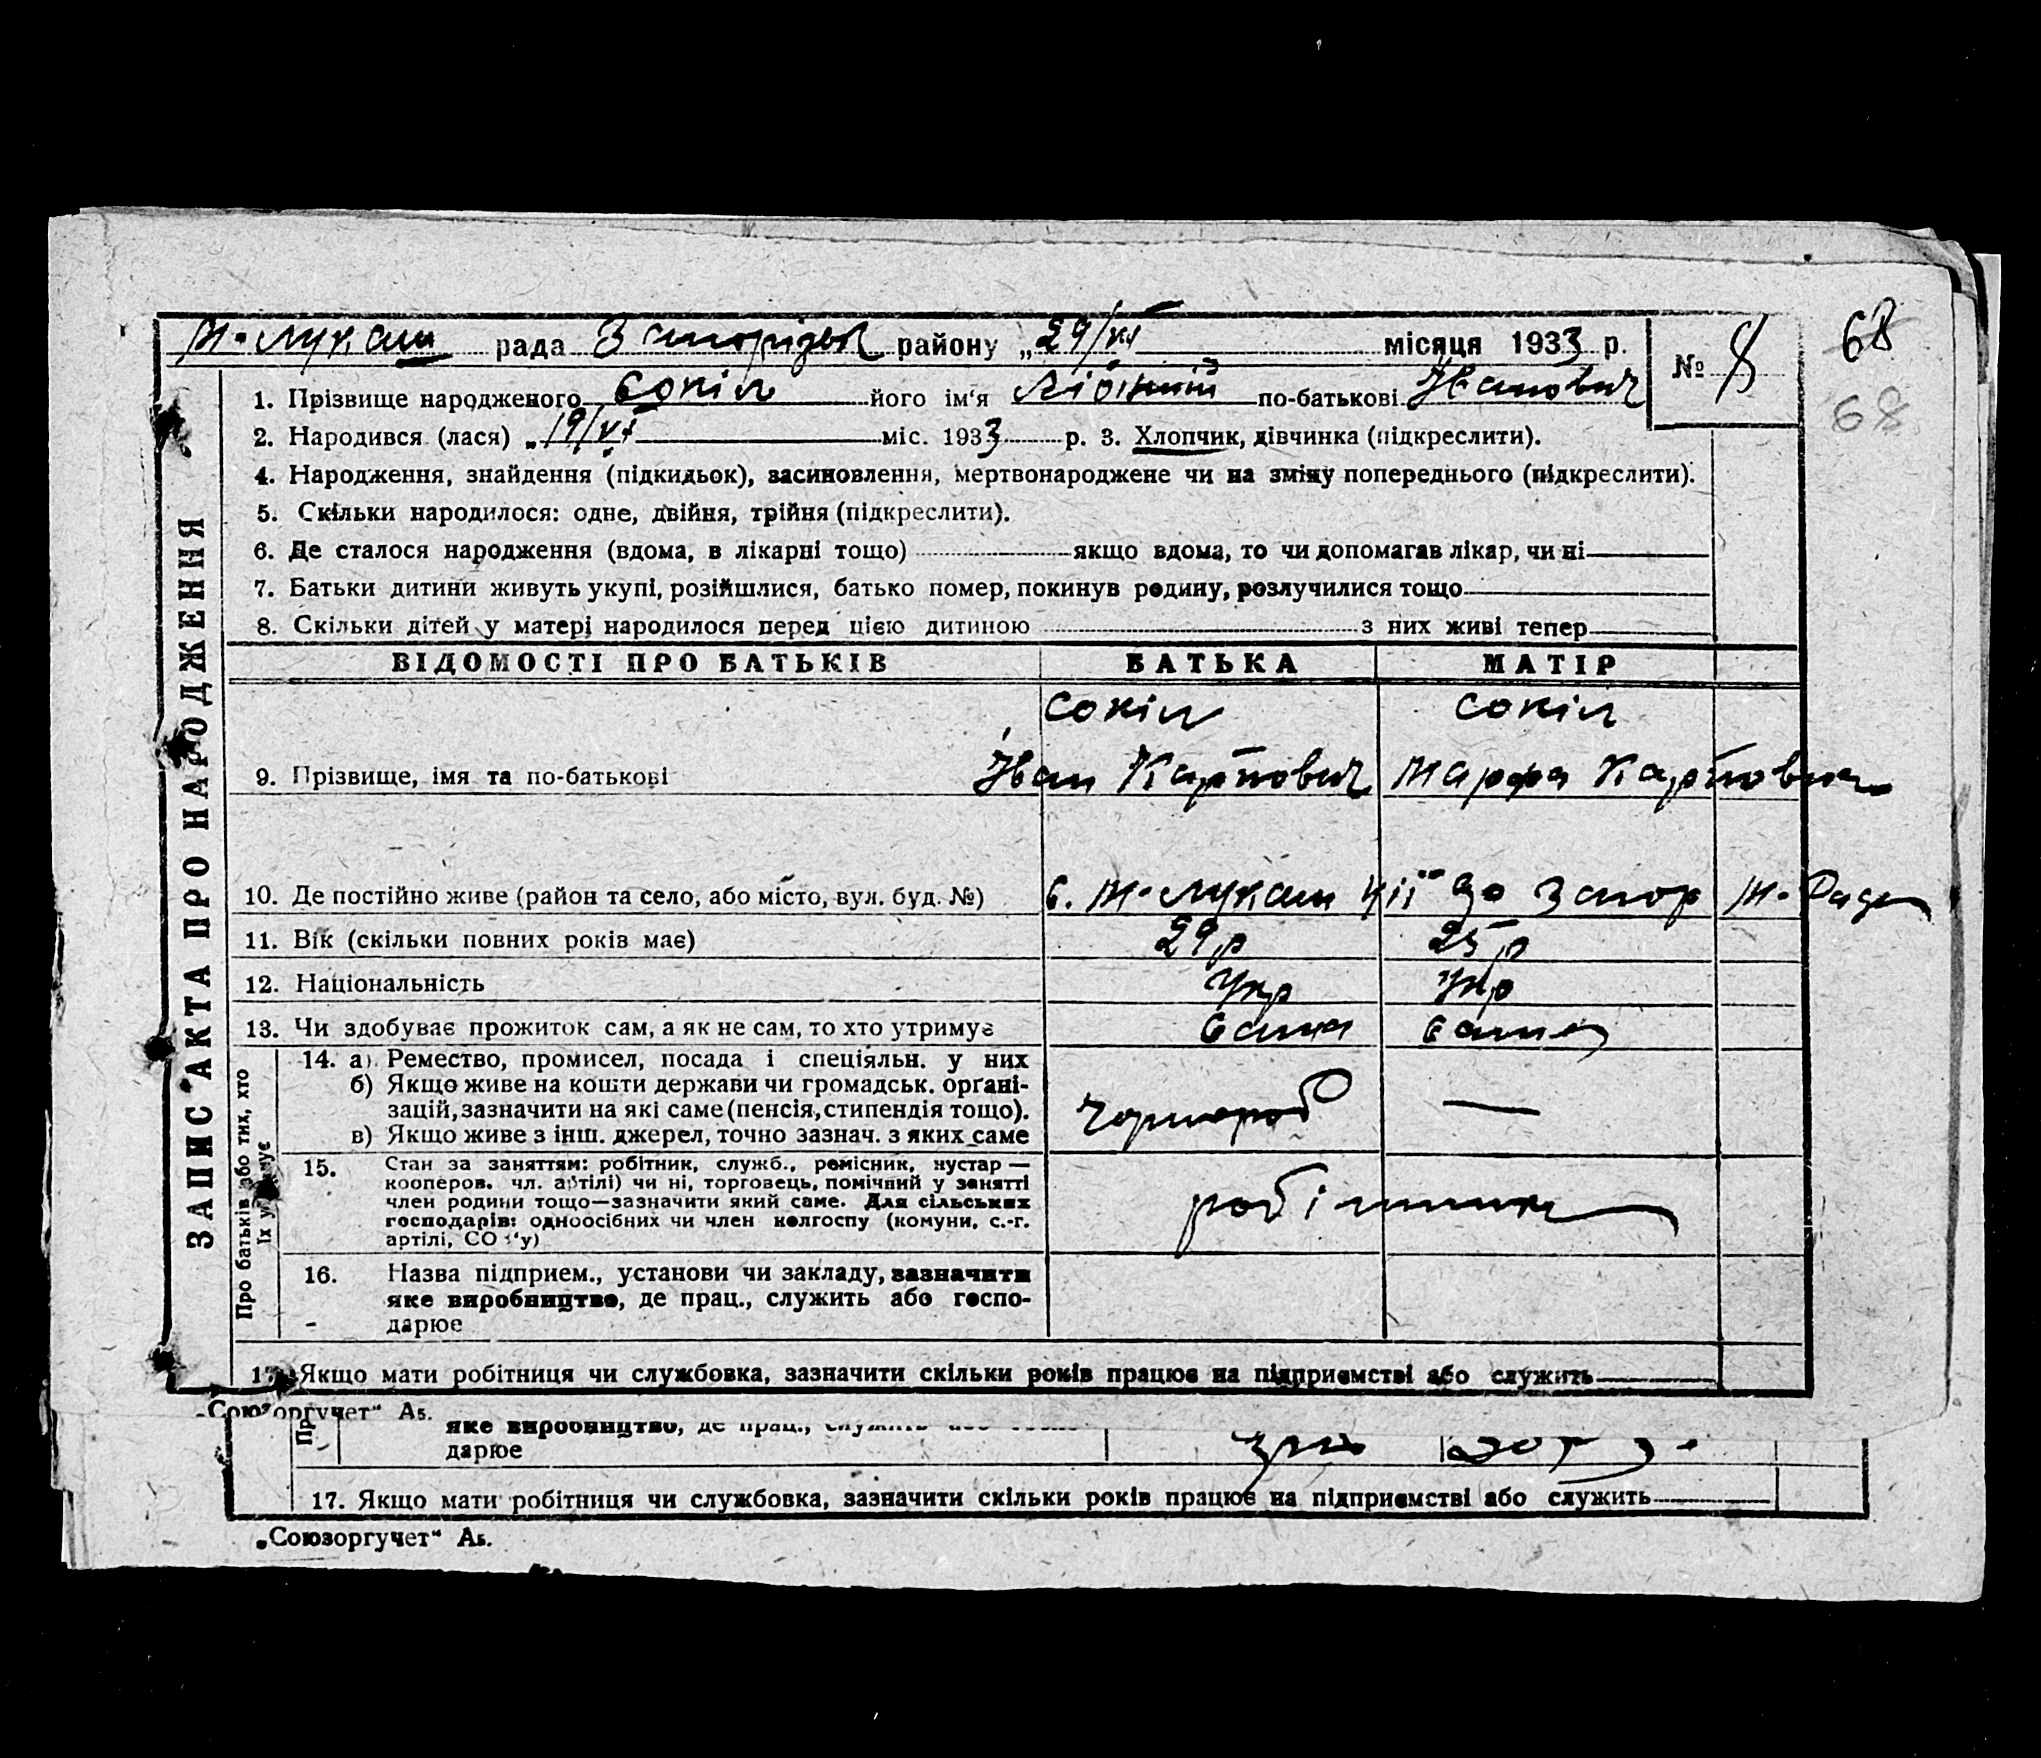 М-Лукаш рада Запорізьк району „29/XI місяця 1933 р. № 8 68
68
1. Прізвище народженого Сокіл його ім'я по-батькові Іванович
2. Народився (лася) „19/VI міс. 1933 р. 3. Хлопчик, дівчинка (підкреслити).
4. Народження, знайдення (підкидьок), засиновлення, мертвонароджене чи на зміну попереднього (підкреслити).
5. Скільки народилося: одне, двійня, трійня (підкреслити).
6. Де сталося народження (вдома, в лікарні тощо) якщо вдома, то чи допомагав лікар, чи ні
7. Батьки дитини живуть укупі, розійшлися, батько помер, покинув родину, розлучилися тощо
8. Скільки дітей у матері народилося перед цією дитиною з них живі тепер
ЗАПИС АКТА ПРО НАРОДЖЕННЯ
ВІДОМОСТІ ПРО БАТЬКІВ БАТЬКА МАТІР
Сокіл Сокіл
9. Прізвище, імя та по-батькові Іван Карпович Марфа Карповна
10. Де постійно живе (район та село, або місто, вул. буд. №) с. М-Лукаш Запор
11. Вік (скільки повних років має) 29 р 25 р
12. Національність Укр Укр
13. Чи здобуває прожиток сам, а як не сам, то хто утримує сама
Про батьків або тих, хто їх утримує
14. а) Ремество, промисел, посада і спеціяльн. у них
б) Якщо живе на кошти держави чи громадськ. орґані-
зацій, зазначити на які саме (пенсія, стипендія тощо). Чорнороб —
в) Якщо живе з інш. джерел, точно зазнач. з яких саме
15. Стан за заняттям: робітник, служб., ремісник, кустар —
кооперов. чл. артілі) чи ні, торговець, помічний у занятті
член родини тощо—зазначити який саме. Для сільських робітник
господарів: одноосібних чи член колгоспу (комуни, с.-г.
артілі, СОЗ'у)
16. Назва підприєм., установи чи закладу, зазначити
яке виробництво, де прац., служить або госпо-
дарює
17. Якщо мати робітниця чи службовка, зазначити скільки років працює на підприємстві або служить
„Союзоргучет" А5.
яке виробництво, де прац., служить
дарює
17. Якщо мати робітниця чи службовка, зазначити скільки років працює на підприємстві або служить
„Союзоргучет" А5.